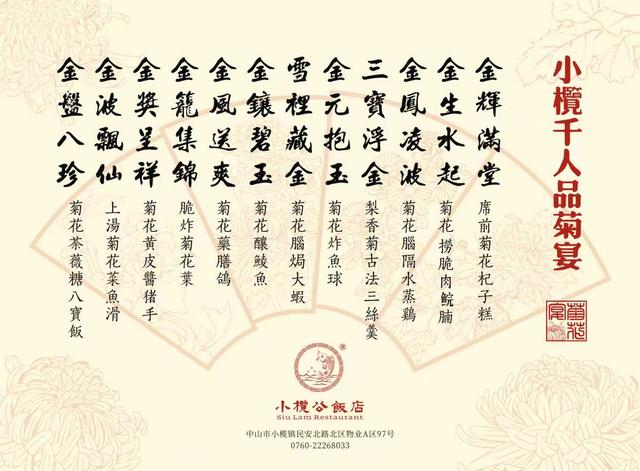 小欖千人品菊宴
菊花宴
金輝滿堂
席前菊花杞子糕
金生水起
菊花撈脆肉鯇腩
金鳳凌波
菊花腦隔水蒸鷄
三寶浮金
梨香菊古法三絲羹
金元抱玉
菊花炸魚球
雪裡藏金
菊花腦焗大蝦
金鑲碧玉
菊花釀鯪魚
金風送爽
菊花藥膳鴿
金籠集錦
脆炸菊花葉
金獎呈祥
菊花黄皮醬猪手
金波飄仙
上湯菊花菜魚滑
金盤八珍
菊花荼薇糖八寶飯
®
小欖公飯店
Siu Lam Restaurant
中山市小欖镇民安北路北区物业A区97号
0760-22268033